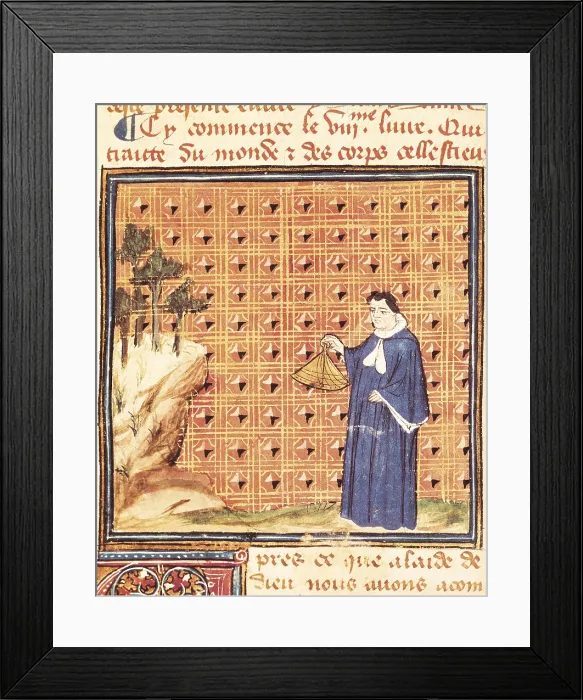 ceste presente
¶ Cy commence le viii.me liure. Qui
traitte du monde et des corps cellestieu
pres ce que alaide de
dieu nous auons acom